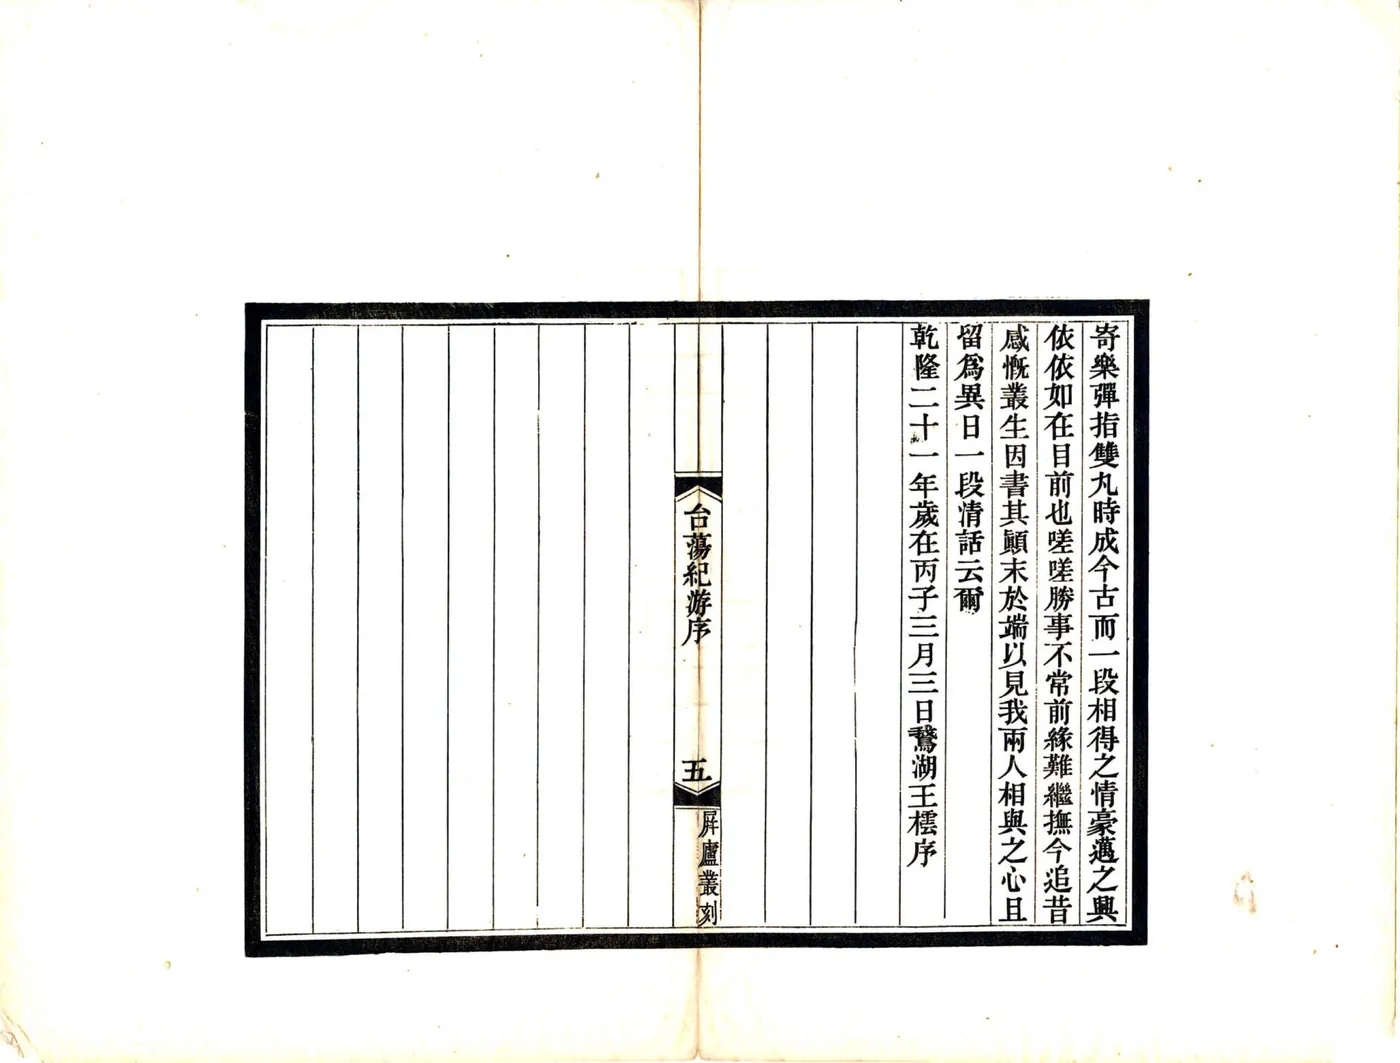 寄樂彈指雙丸時成今古而一段相得之情豪邁之興
依依如在目前也嗟嗟勝事不常前緣難繼撫今追昔
感慨叢生因書其顚末於端以見我兩人相與之心且
留爲異日一段清話云爾
乾隆二十一年歲在丙子三月三日鵞湖王橒序
台蕩紀游序
五
屛廬叢刻